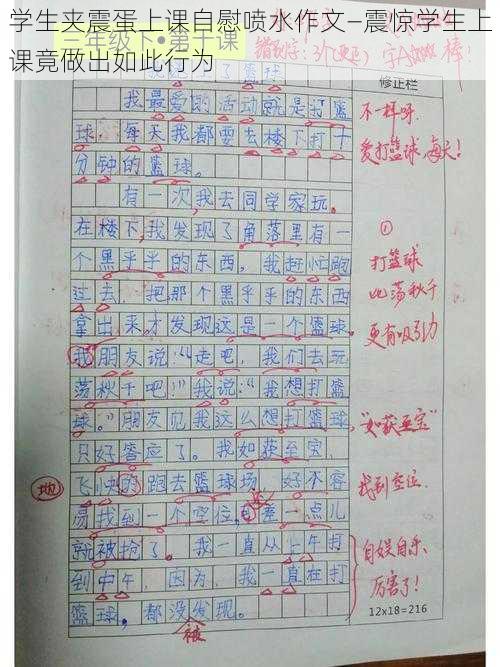 三年级下•第十课
修正栏
我最爱的活动就是打篮
球，每天我都要去楼下打十
分钟的篮球。
有一次，我去同学家玩。
在楼下，我发现了角落里有一
个黑乎乎的东西，我赶忙跑
过去，把那个黑乎乎的东西
拿出来才发现这是一个篮球。
我朋友说：“走吧，我们去玩
荡秋千吧！”我说：“我想打篮
球。”朋友见我这么想打篮球，
只好答应了。我如获至宝，
飞快的跑去篮球场，好不容
易找到一个空位，差一点儿
就被抢了。我一直从上午打
到中午，因为，我一直在打
篮球，都没发现。
地
被
不一样呀，
爱打篮球，每天！
①
打篮球
比荡秋千
更有吸引力
“如获至宝”
找到空位，
自娱自乐，
厉害了！
12x18=216